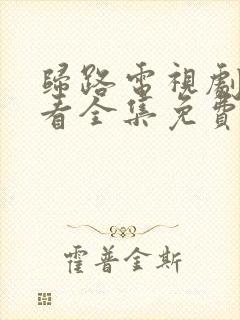 歸路電視劇
看全集免費
霍普金斯